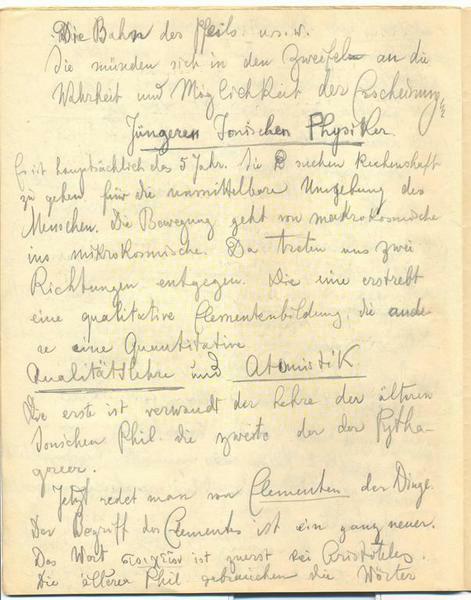 Die Bahn des Pfeils u.s.w.
Sie münden sich in den Zweifeln an die
Wahrheit und Möglichkeit der Erscheinung
Jüngeren Ionischen Physiker.
Es ist hauptsächlich das 5 Jahr. Sie suchen Rechenschaft
zu geben für die unmittelbare Umgebung des
Menschen. Die Bewegung geht von makrokosmische
ins mikrokosmische. Da treten uns zwei
Richtungen entgegen. Die eine erstrebt
eine qualitative Elementenbildung, die ande
re eine Quantitative
Qualitätslehre und Atomistik
Die erste ist verwandt der Lehre der älteren
Ionischen Phil. die zweite der der Pytha-
goreer.
Jetzt redet man von Elementen der Dinge.
Der Begriff des Elementes ist ein ganz neuer.
Das Wort στοιχεῖον ist zuerst bei Aristoteles.
Die älteren Phil gebrauchen die Wörter